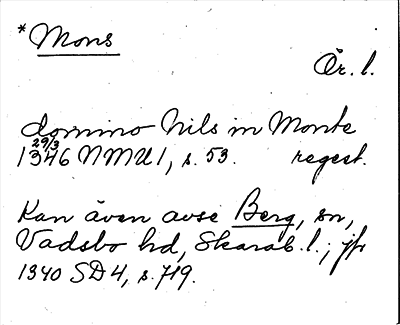 * Mons
Ör. l.
domino Nils in Monte
29/3
1346 NMU 1, s. 53. regest.
Kan även avse Berg, sn,
Vadsbo hd, Skarab. l.; jfr
1340 SD 4, s. 719.